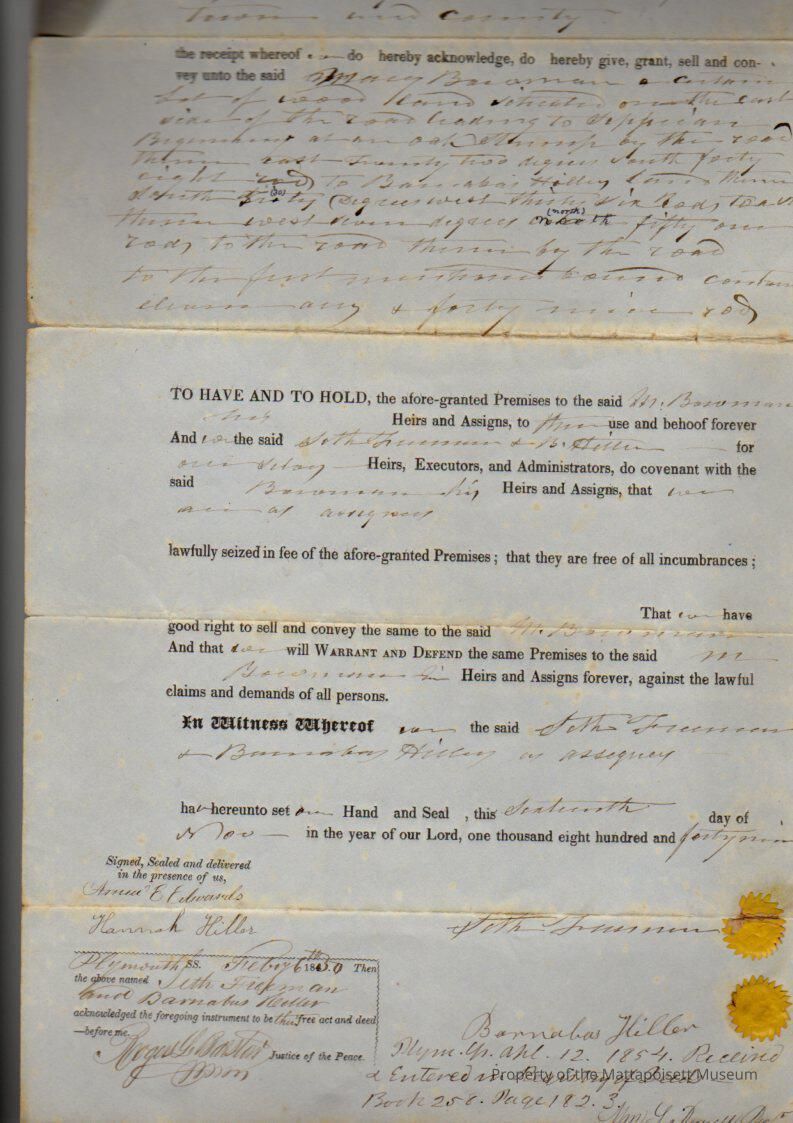 town and county
the receipt whereof we do hereby acknowledge, do hereby give, grant, sell and con-
vey unto the said Mary Bowman a certain
lot of wood land situated on the east
side of the road leading to Sippican
Beginning at an oak Stump by the road
thence east twenty two degrees South forty
eight rods to Barnabas Hiller land thence
South (30) degrees west thirty six rods to a
thence west seven degrees (north) north fifty one
rods to the road thence by the road
to the first mentioned bound
eleven & forty nine rods
TO HAVE AND TO HOLD, the afore-granted Premises to the said M. Bowman
his Heirs and Assigns, to their use and behoof forever
And we the said Seth Freeman & B. Hiller for
our selves Heirs, Executors, and Administrators, do covenant with the
said Bowman his Heirs and Assigns, that we
are as
lawfully seized in fee of the afore-granted Premises; that they are free of all incumbrances;
That we have
good right to sell and convey the same to the said M. Bowman
And that we will WARRANT AND DEFEND the same Premises to the said M
Bowman his Heirs and Assigns forever, against the lawful
claims and demands of all persons.
In Witness Whereof we the said Seth Freeman
& Barnabas Hiller as
have hereunto set our Hand and Seal , this Sixteenth day of
Nov in the year of our Lord, one thousand eight hundred and forty nine
Signed, Sealed and delivered
in the presence of us,
E Edwards
Hannah Hiller
Seth Freeman
Plymouth SS. Feby 6th 1850 Then
the above named Seth Freeman
and Barnabas Hiller
acknowledged the foregoing instrument to be their free act and deed
—before me.
Justice of the Peace.
Barnabas Hiller
Plym. Ss. Apl. 12. 1854. Received
& Entered
Property of the Mattapoisett Museum
Book 258. Page 182.3.